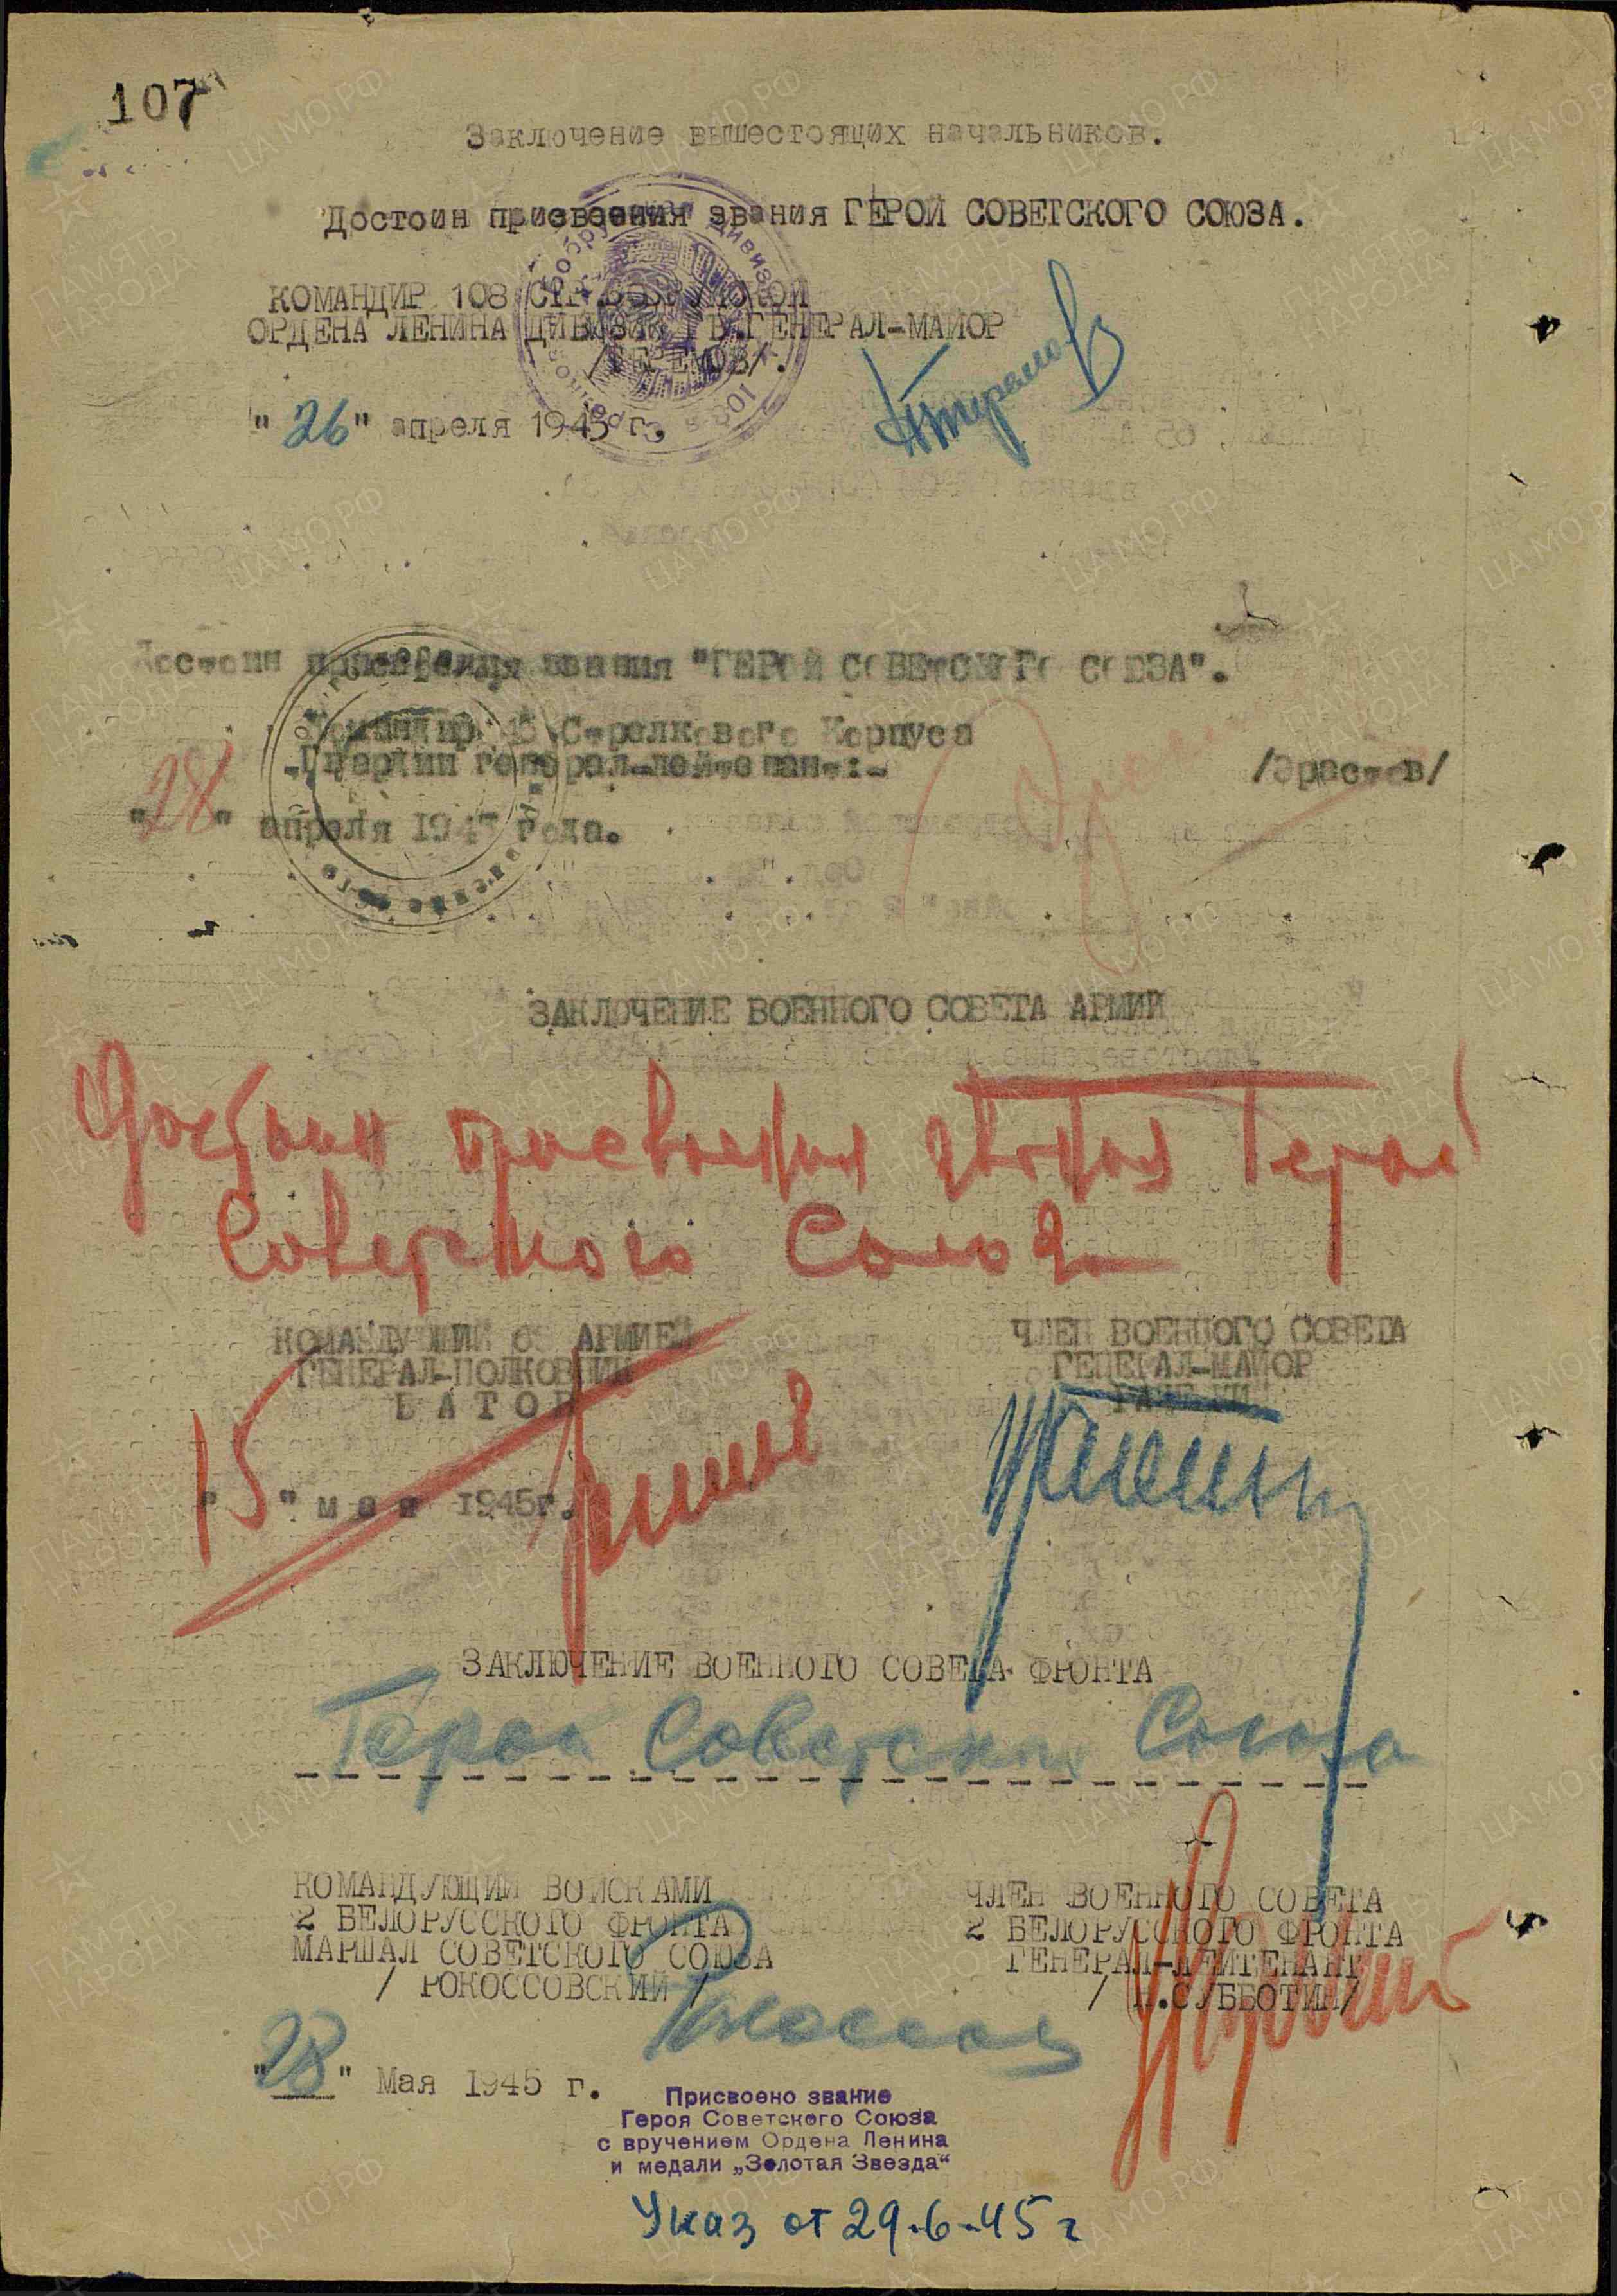 107
Заключение вышестоящих начальников.
Достоин присвоения звания ГЕРОЙ СОВЕТСКОГО СОЮЗА.
КОМАНДИР 108 СТР.
ОРДЕНА ЛЕНИНА ДИВИЗИИ ГВ.ГЕНЕРАЛ-МАЙОР
/ТЕРЕМОВ/.
"26" апреля 1945 г.
Достоин присвоения звания "ГЕРОЙ СОВЕТСКОГО СОЮЗА".
Командир Стрелкового Корпуса
Гвардии генерал-лейтенант:-
/Эрастов/
"28" апреля 1945 года.
ЗАКЛЮЧЕНИЕ ВОЕННОГО СОВЕТА АРМИИ
Достоин присвоения звания Герой
Советского Союза
КОМАНДУЮЩИЙ 65 АРМИЕЙ
ГЕНЕРАЛ-ПОЛКОВНИК
БАТОВ
"15" мая 1945г.
ЧЛЕН ВОЕННОГО СОВЕТА
ГЕНЕРАЛ-МАЙОР
ЗАКЛЮЧЕНИЕ ВОЕННОГО СОВЕТА ФРОНТА
Героя Советского Союза
КОМАНДУЮЩИЙ ВОЙСКАМИ
2 БЕЛОРУССКОГО ФРОНТА
МАРШАЛ СОВЕТСКОГО СОЮЗА
/ РОКОССОВСКИЙ /
"28" Мая 1945 г.
ЧЛЕН ВОЕННОГО СОВЕТА
2 БЕЛОРУССКОГО ФРОНТА
ГЕНЕРАЛ-ЛЕЙТЕНАНТ
/ Н.СУББОТИН/
Присвоено звание
Героя Советского Союза
с вручением Ордена Ленина
и медали „Золотая Звезда“
Указ от 29.6.45 г
ЦА МО РФ
ПАМЯТЬ НАРОДА